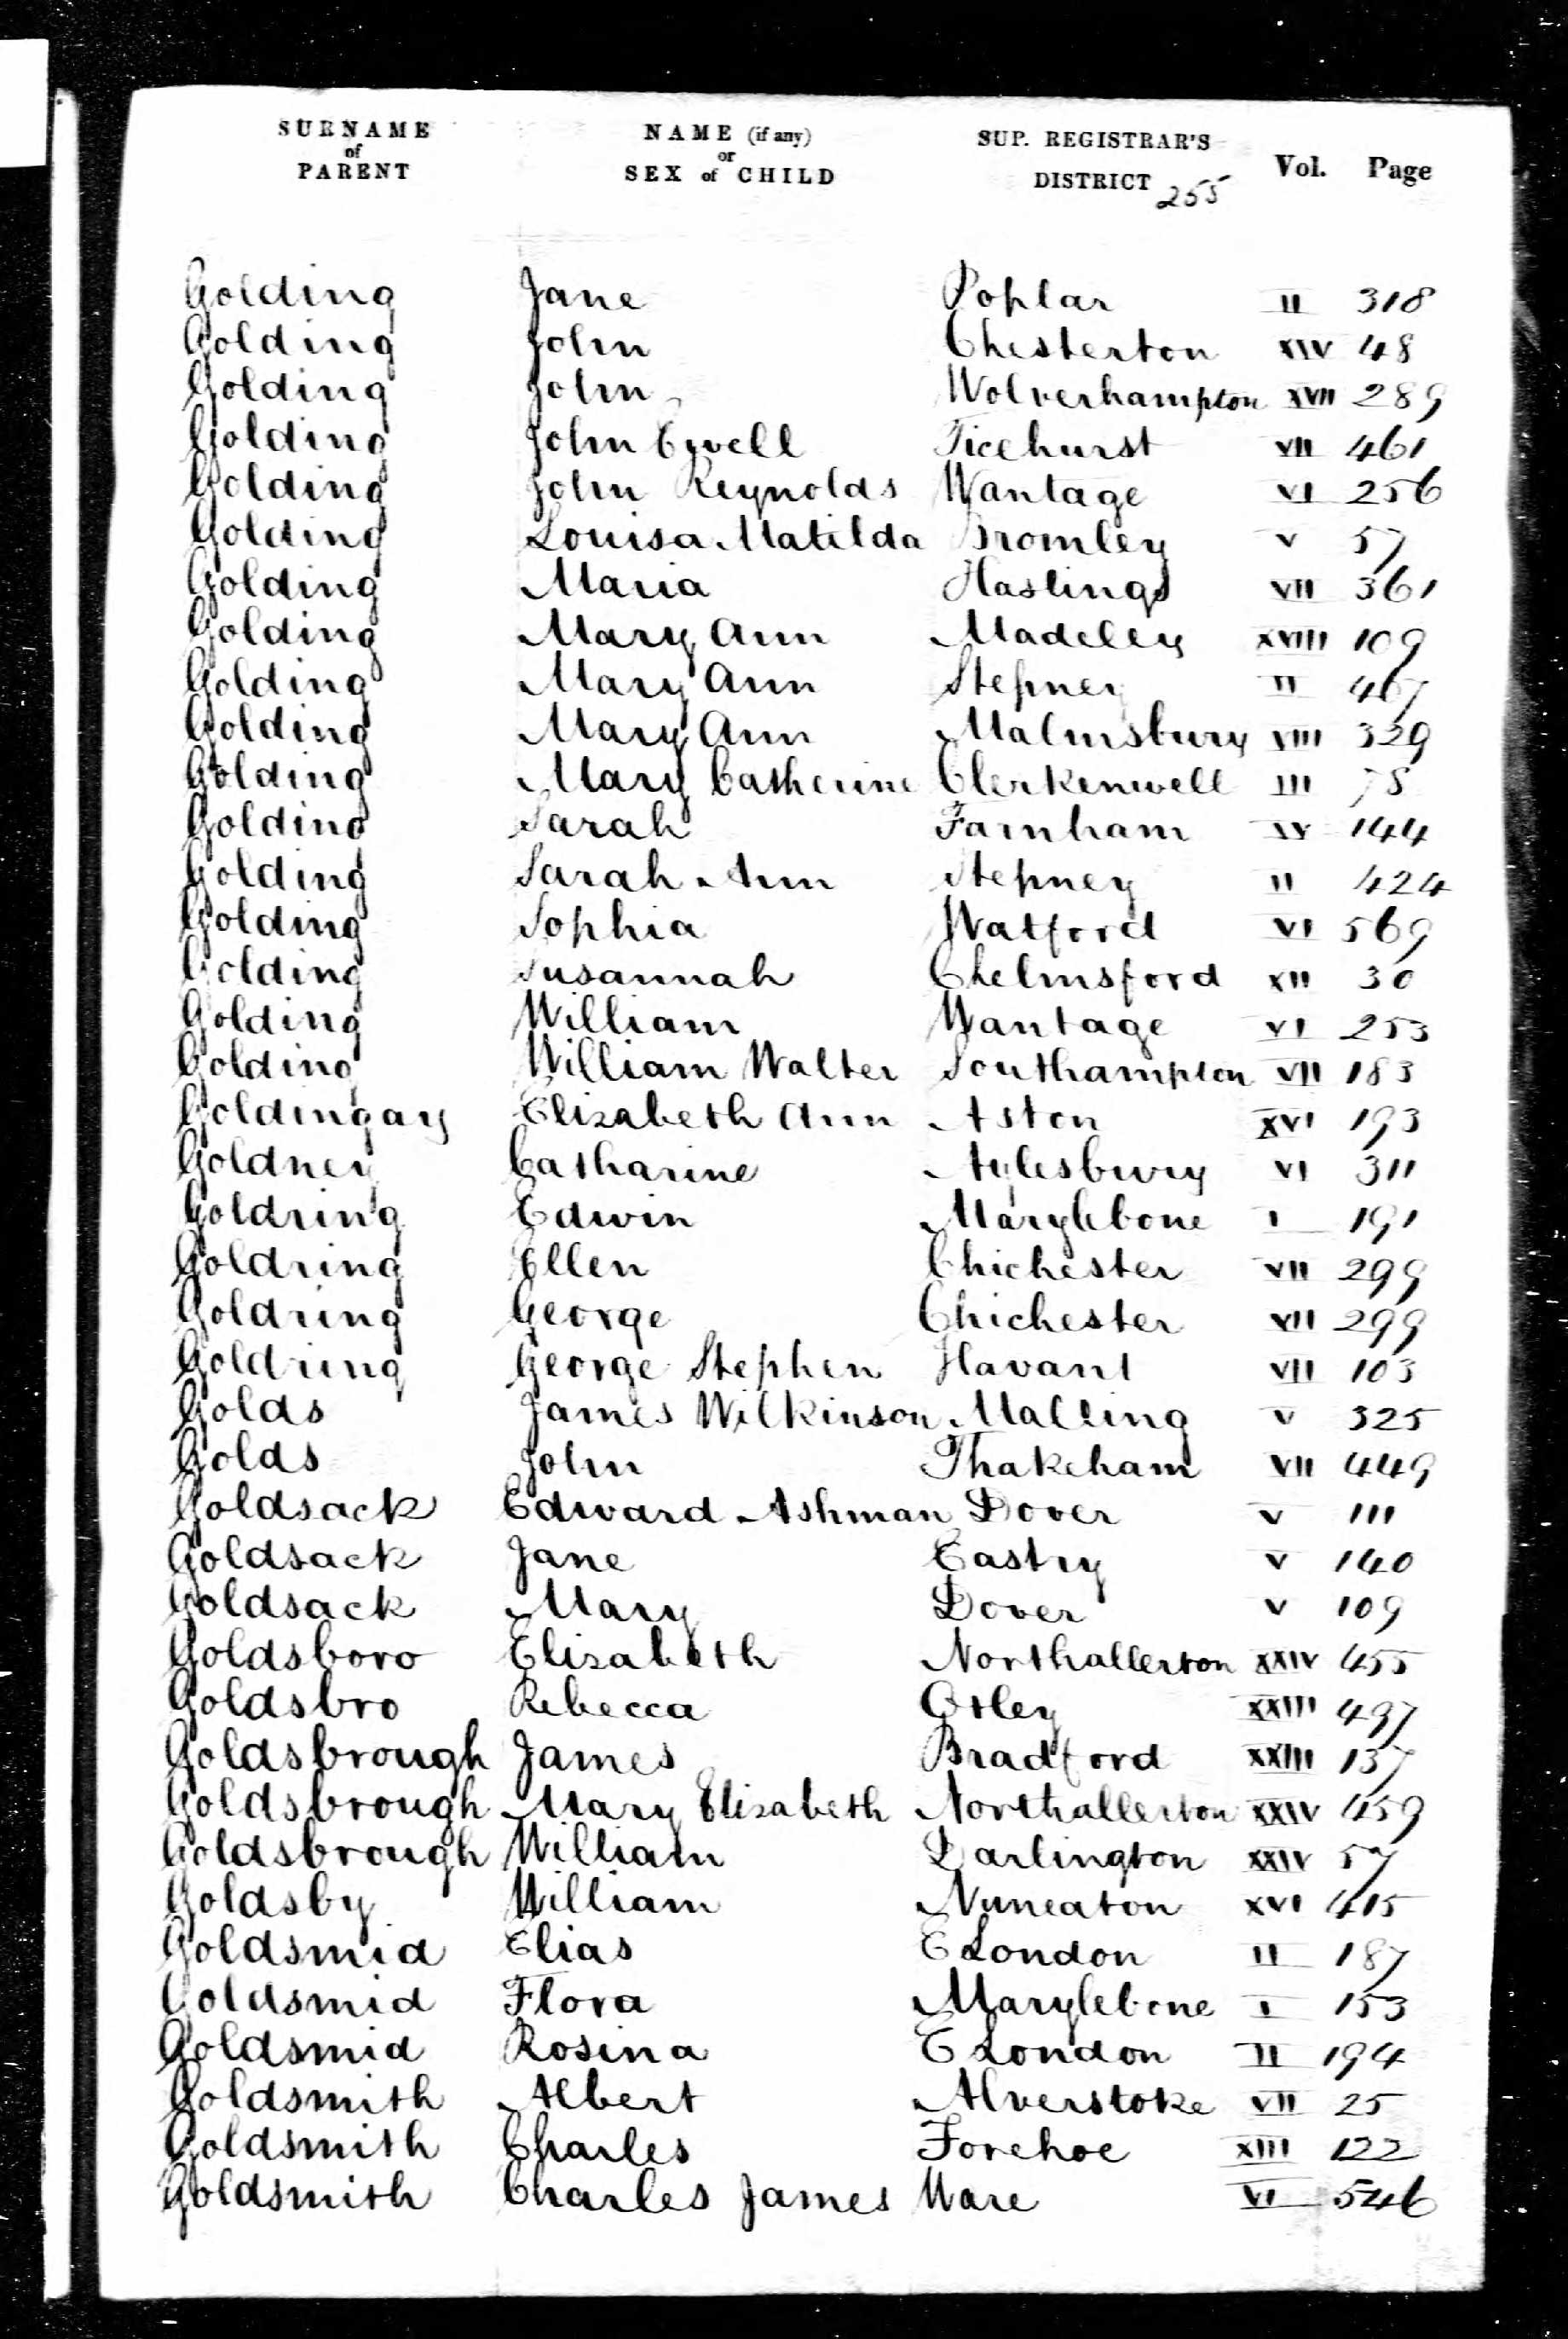 SURNAME of PARENT NAME (if any) or SEX of CHILD SUP. REGISTRAR'S DISTRICT 255 Vol. Page
Golding Jane Poplar II 318
Golding John Chesterton XIV 48
Golding John Wolverhampton XVII 289
Golding John Ewell Ticehurst VII 461
Golding John Reynolds Wantage VI 256
Golding Louisa Matilda Bromley V 57
Golding Maria Hastings VII 361
Golding Mary Ann Madeley XVIII 109
Golding Mary Ann Stepney II 467
Golding Mary Ann Malmsbury VIII 329
Golding Mary Catherine Clerkenwell III 78
Golding Sarah Farnham 144
Golding Sarah Ann Stepney II 424
Golding Sophia Watford VI 569
Golding Susannah Chelmsford XII 30
Golding William Wantage VI 253
Golding William Walter Southampton VII 183
Goldingay Elizabeth Ann Aston XVI 193
Goldney Catharine Aylesbury VI 311
Goldring Edwin Marylebone I 191
Goldring Ellen Chichester VII 299
Goldring George Chichester VII 299
Goldring George Stephen Havant VII 103
Golds James Wilkinson Malling V 325
Golds John Thakeham VII 449
Goldsack Edward Ashman Dover V 111
Goldsack Jane Eastry V 140
Goldsack Mary Dover V 109
Goldsboro Elizabeth Northallerton XXIV 455
Goldsbro Rebecca Otley XXIII 497
Goldsbrough James Bradford XXIII 137
Goldsbrough Mary Elizabeth Northallerton XXIV 459
Goldsbrough William Darlington XXIV 57
Goldsby William Nuneaton XVI 415
Goldsmid Elias E London II 187
Goldsmid Flora Marylebone I 153
Goldsmid Rosina E London II 194
Goldsmith Albert Alverstoke VII 25
Goldsmith Charles Forehoe XIII 122
Goldsmith Charles James Ware VI 546